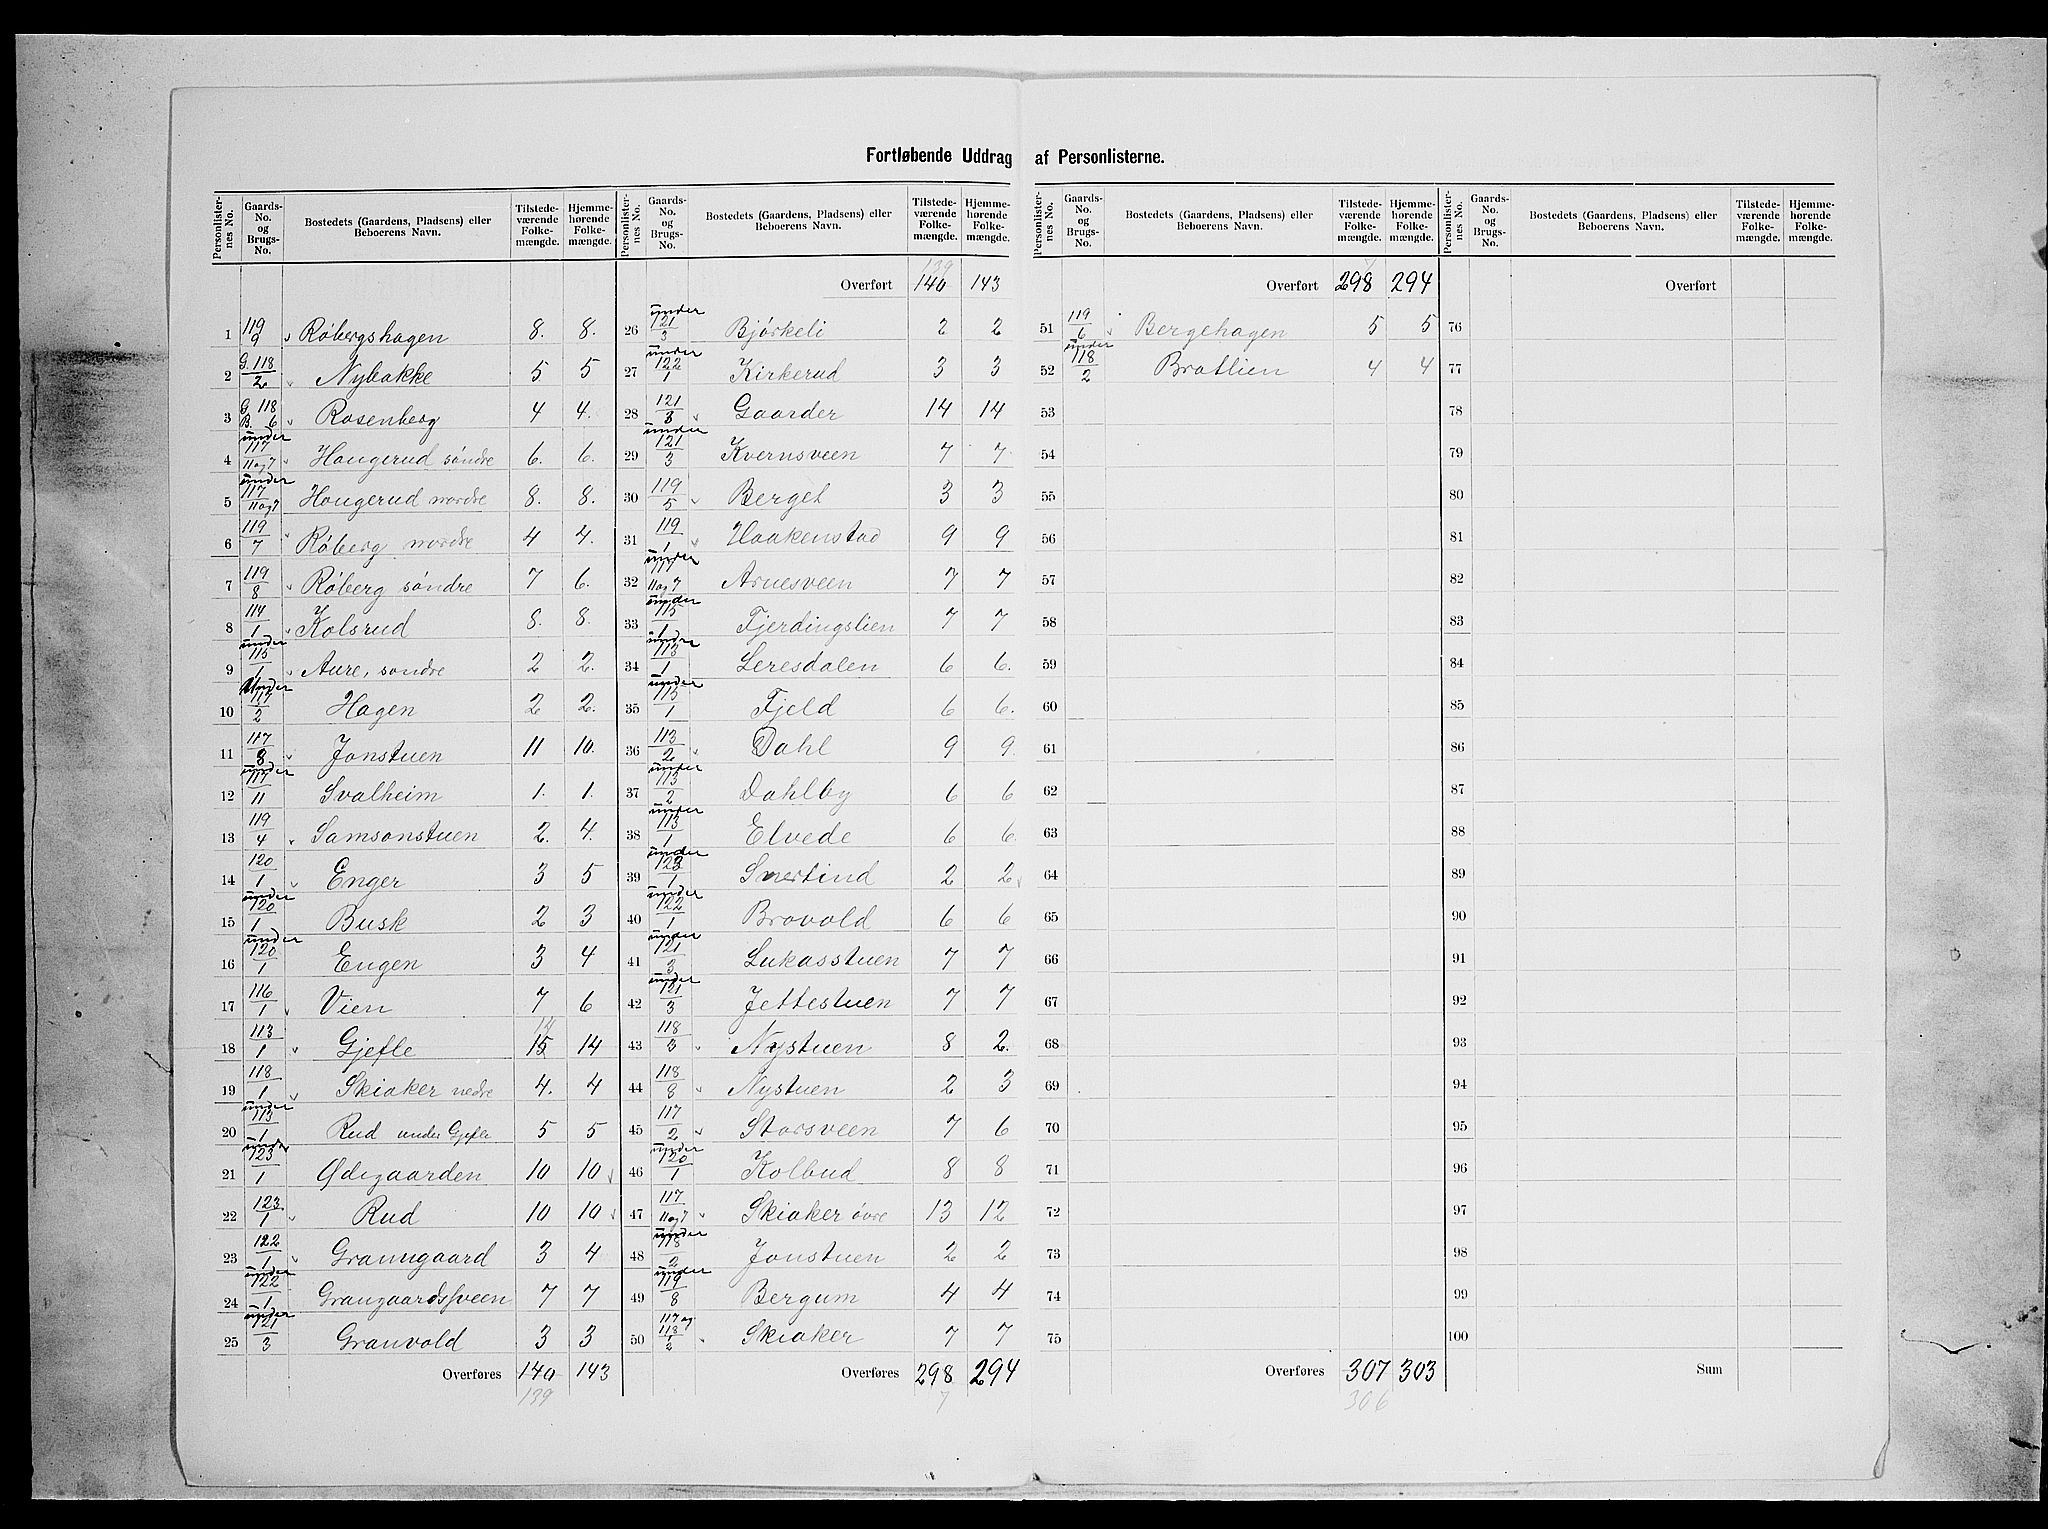 Fortløbende Uddrag af Personlisterne.
Personlisternes No. | Gaards-No. og Brugs-No. | Bostedets (Gaardens, Pladsens) eller Beboerens Navn. | Tilstedeværende Folkemængde. | Hjemmehørende Folkemængde.
1 119/9 Røbergshagen 8. 8.
2 G. 118/2 Nybakke 5 5
3 G. 118 B. 6 Rosenberg 4 4.
4 under 117/11og7 Hougerud søndre 6. 6.
5 under 117/11og7 Hougerud nordre 8. 8.
6 119/7 Røberg nordre 4 4.
7 119/8 Røberg søndre 7 6.
8 114/1 Kolsrud 8. 8.
9 under 115/1 Aure, søndre 2 2.
10 Under 117/2 Hagen 2 2.
11 117/8 Jonstuen 11 10.
12 under 117/11 Svalheim 1. 1.
13 119/4 Samsonstuen 2. 4.
14 120/1 Enger 3 5
15 under 120/1 Busk 2 3
16 under 120/1 Engen 3 4
17 116/1 Vien 7 6
18 113/1 Gjefle 15 14 14
19 118/1 Skiaker nedre 4. 4
20 under 113/1 Rud under Gjefle 5 5
21 under 123/1 Ødegaarden 10 10
22 123/1 Rud 10 10
23 122/1 Granngaard 3 4
24 under 122/1 Grangaardsveen 7 7
25 under 121/3 Granvold 3 3
Overføres 140 143
139
Personlisternes No. | Gaards-No. og Brugs-No. | Bostedets (Gaardens, Pladsens) eller Beboerens Navn. | Tilstedeværende Folkemængde. | Hjemmehørende Folkemængde.
139
Overført 140 143
26 under 121/3 Bjørkeli 2 2
27 under 122/1 Kirkerud 3 3
28 121/3 Gaarder 14 14
29 under 121/3 Kvernsveen 7 7
30 119/5 Berget 3 3
31 119/1 Haakenstad 9 9
32 under 117/11og7 Arnesveen 7 7
33 under 115/1 Fjerdingslien 7 7
34 under 113/1 Leresdalen 6 6.
35 under 115/1 Fjeld 6 6.
36 113/2 Dahl 9 9.
37 under 113/2 Dahlby 6 6
38 under 113/1 Elvede 6 6.
39 under 123/1 Snertind 2 2
40 under 122/1 Brovold 6 6
41 under 121/3 Lukasstuen 7 7
42 under 121/3 Jettestuen 7 7
43 118/3 Nystuen 8 2.
44 118/8 Nystuen 2 3
45 117/2 Storsveen 7 6
46 under 120/1 Kolbud 8 8
47 117/11og7 Skiaker øvre 13 12
48 under 118/2 Jonstuen 2 2
49 under 119/8 Bergum 4 4
50 117 og 118/2 Skiaker 7 7
Overføres 298 294
7
Personlisternes No. | Gaards-No. og Brugs-No. | Bostedets (Gaardens, Pladsens) eller Beboerens Navn. | Tilstedeværende Folkemængde. | Hjemmehørende Folkemængde.
7
Overført 298 294
51 119/6 Bergehagen 5 5
52 under 118/2 Bratlien 4 4
53
54
55
56
57
58
59
60
61
62
63
64
65
66
67
68
69
70
71
72
73
74
75
Overføres 307 303
306
Personlisternes No. | Gaards-No. og Brugs-No. | Bostedets (Gaardens, Pladsens) eller Beboerens Navn. | Tilstedeværende Folkemængde. | Hjemmehørende Folkemængde.
Overført
76
77
78
79
80
81
82
83
84
85
86
87
88
89
90
91
92
93
94
95
96
97
98
99
100
Sum